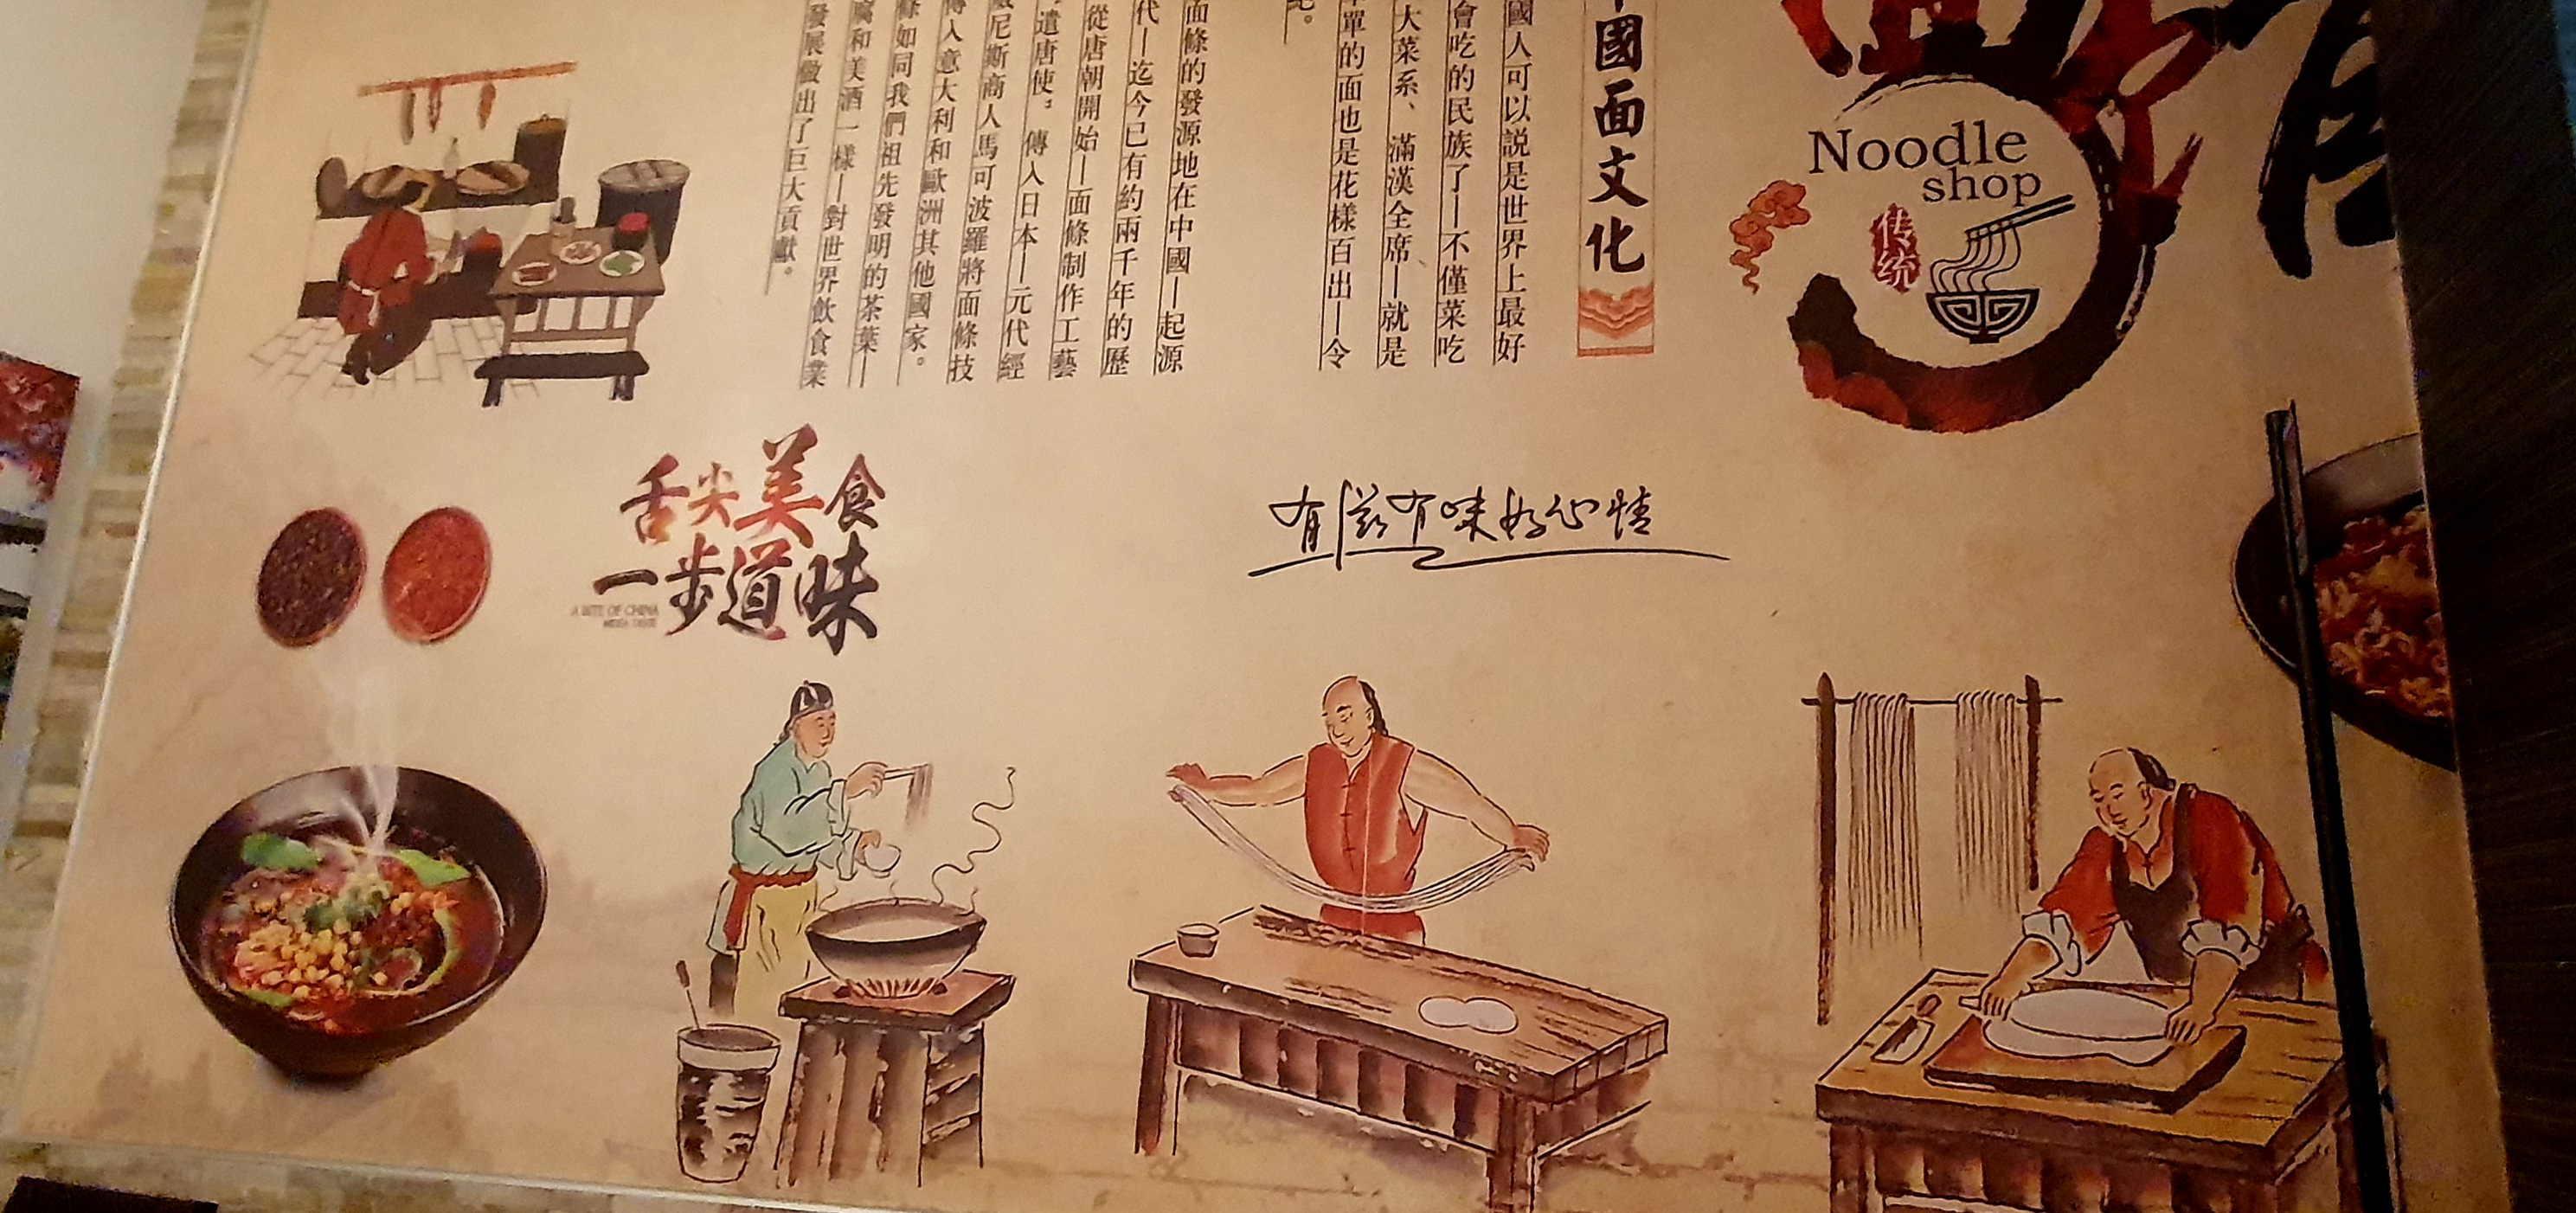 Noodle
shop
传统
國面文化
國人可以説是世界上最好
會吃的民族了—不僅菜吃
大菜系、滿漢全席—就是
單的面也是花樣百出—令
面條的發源地在中國—起源
代—迄今已有約兩千年的歷
從唐朝開始—面條制作工藝
遣唐使。傳入日本—元代經
威尼斯商人馬可波羅將面條技
傳入意大利和歐洲其他國家。
條如同我們祖先發明的茶葉—
腐和美酒一樣—對世界飲食業
發展做出了巨大貢獻。
有滋有味好心情
舌尖美食
一步道味
A BITE OF CHINA